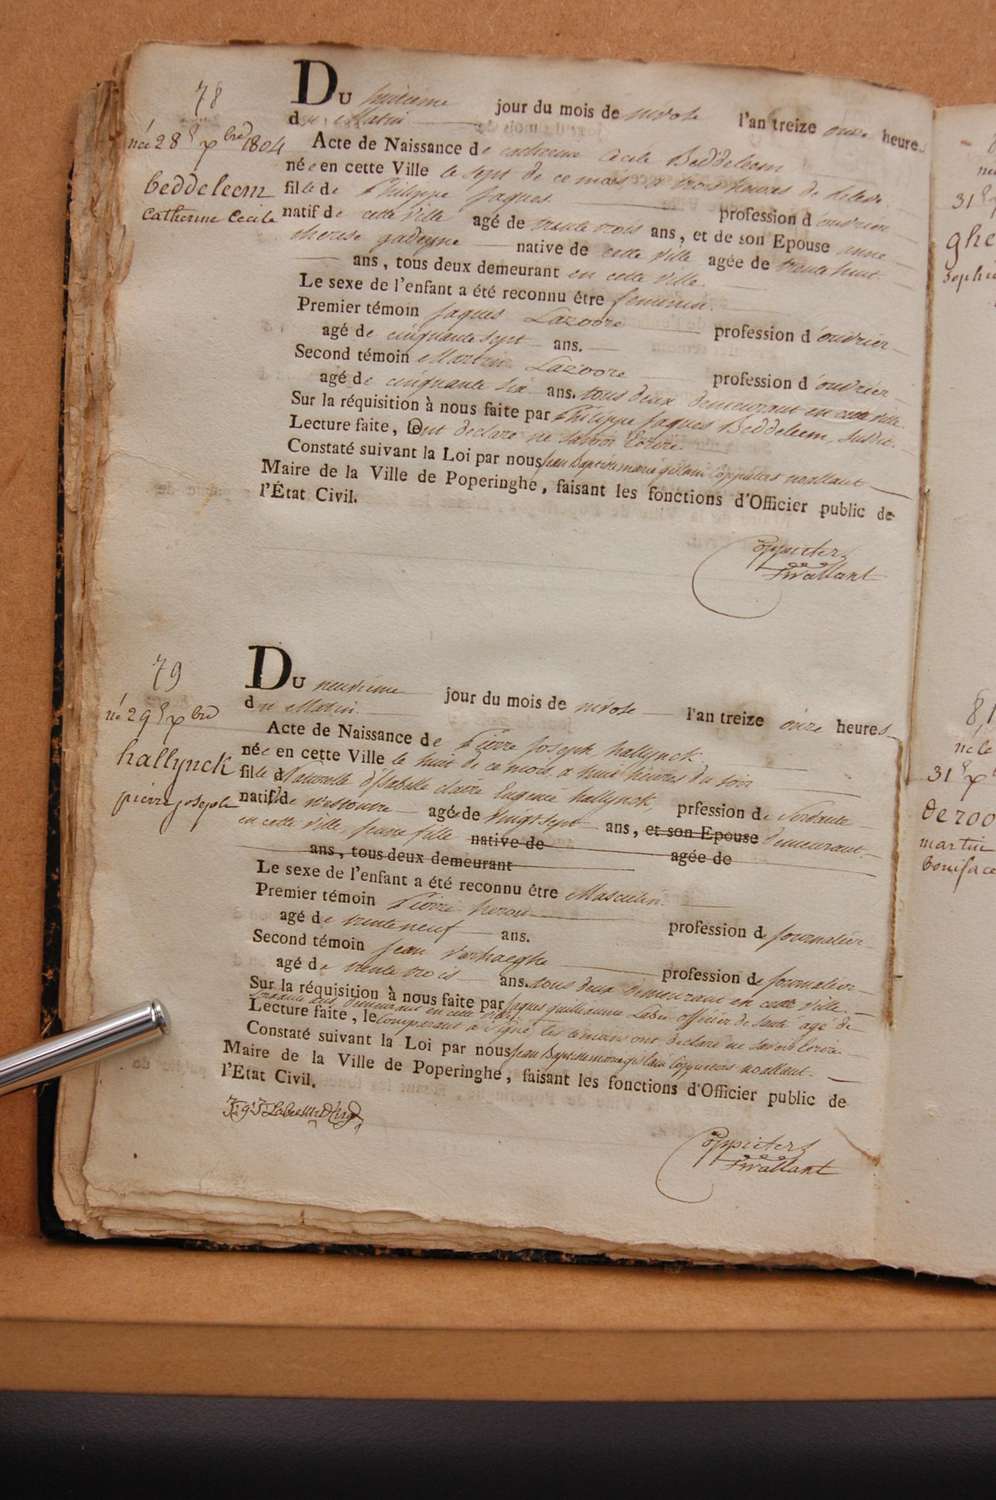 78
né 28 Xbre 1804
beddeleem
Catherine Cecile
Du huitieme jour du mois de nivose l'an treize onze heures
du Matin
Acte de Naissance de Catherine Cecile Beddeleem
née en cette Ville le sept de ce mois a trois heures de relevée
fille de Philippe Jaques profession d'ouvrier
natif de cette ville agé de trente trois ans, et de son Epouse anne
therese gadeyne native de cette ville agée de trente huit
ans, tous deux demeurant en cette ville.
Le sexe de l'enfant a été reconnu être feminin.
Premier témoin Jaques Lazoore profession d'ouvrier
agé de cinquante sept ans.
Second témoin Martin Lazoore profession d'ouvrier
agé de cinquante six ans. tous deux demeurant en cette ville.
Sur la réquisition à nous faite par Philippe Jaques Beddeleem, susdit.
Lecture faite, ont declaré ne savoir Ecrire.
Constaté suivant la Loi par nous Jean Baptiste marie Coppieters wallant
Maire de la Ville de Poperinghe, faisant les fonctions d'Officier public de
l'État Civil.
Coppieters
wallant
79
né 29 Xbre
hallynck
pierre joseph
Du neuvieme jour du mois de nivose l'an treize onze heures
du Matin
Acte de Naissance de Pierre Joseph hallynck
née en cette Ville le huit de ce mois a huit heures du soir
fils naturelle d'Isabelle claire Eugenie hallynck, prfession de Servante
native de agée de vingt sept ans, et son Epouse demeurant
en cette ville, jeune fille native de agée de
ans, tous deux demeurant
Le sexe de l'enfant a été reconnu être Masculin.
Premier témoin Pierre profession de journalier
agé de trente neuf ans.
Second témoin Jean Verhaeghe profession de journalier
agé de trente trois ans. tous deux demeurant en cette ville
Sur la réquisition à nous faite par Jaques guillaume Labes officier de santé agé de
trente demeurant en cette ville
Lecture faite, le comparant a signé les temoins ont declaré ne savoir Ecrire
Constaté suivant la Loi par nous Jean Baptiste marie Coppieters wallant.
Maire de la Ville de Poperinghe, faisant les fonctions d'Officier public de
l'Etat Civil.
Coppieters
wallant
31 Xb
ghe
sophi
81
né le
31 Xb
deroo
martin
boniface